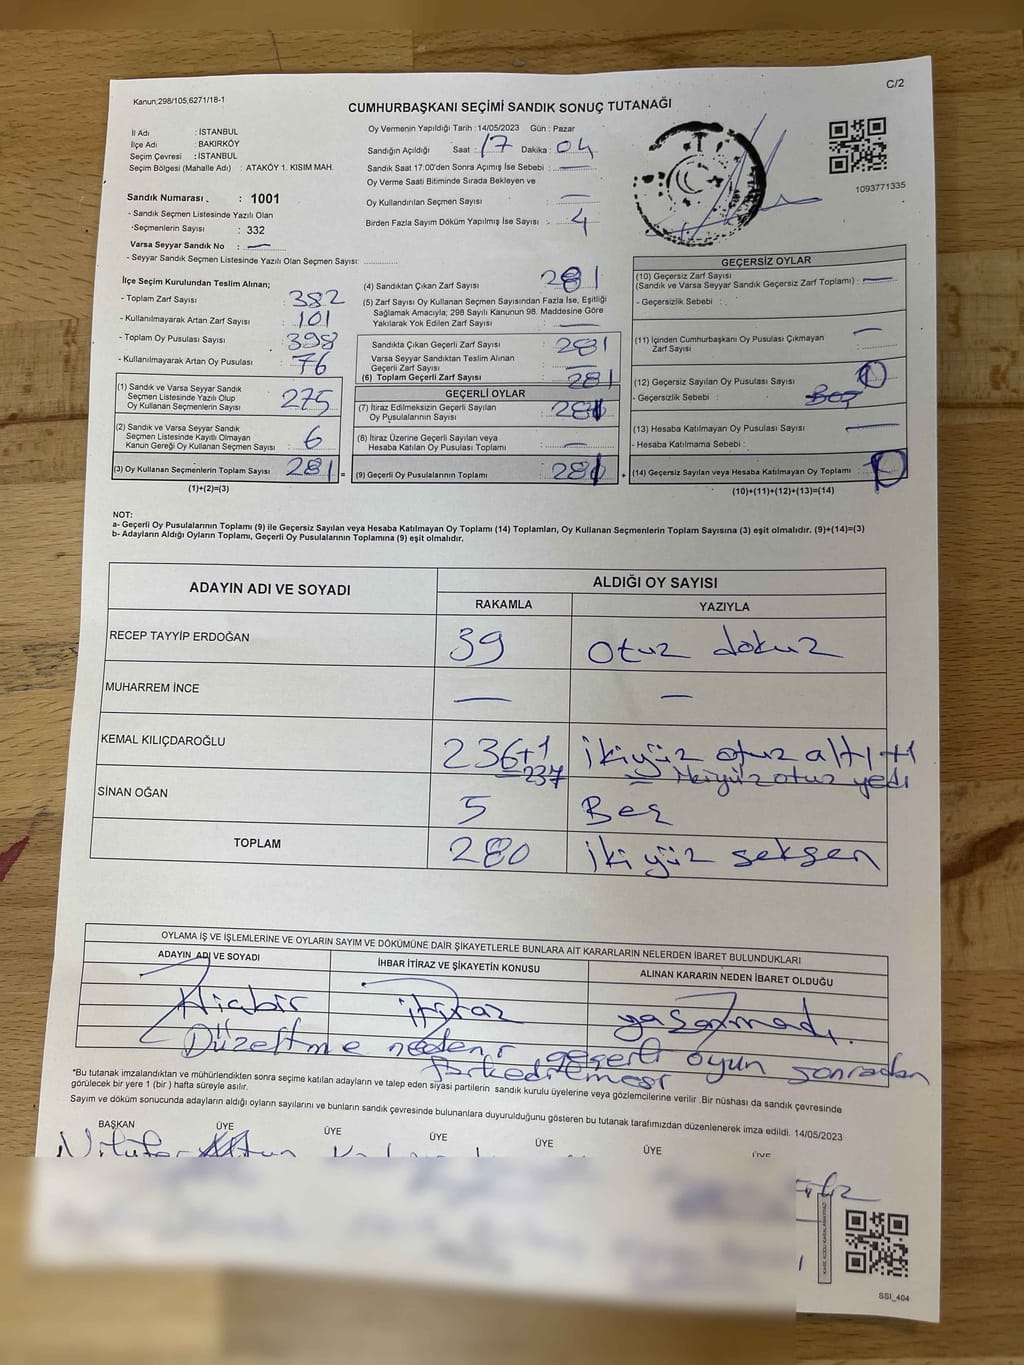 C/2
Kanun;298/105,6271/18-1
CUMHURBAŞKANI SEÇİMİ SANDIK SONUÇ TUTANAĞI
İl Adı : İSTANBUL
İlçe Adı : BAKIRKÖY
Seçim Çevresi : İSTANBUL
Seçim Bölgesi (Mahalle Adı) : ATAKÖY 1. KISIM MAH.
Oy Vermenin Yapıldığı Tarih : 14/05/2023 Gün : Pazar
Sandığın Açıldığı Saat : 17 Dakika : 04
Sandık Saat 17:00'den Sonra Açımış İse Sebebi : —
Oy Verme Saati Bitiminde Sırada Bekleyen ve
Oy Kullandırılan Seçmen Sayısı : —
Birden Fazla Sayım Döküm Yapılmış İse Sayısı : 4
1093771335
Sandık Numarası . : 1001
- Sandık Seçmen Listesinde Yazılı Olan
-Seçmenlerin Sayısı : 332
Varsa Seyyar Sandık No : —
- Seyyar Sandık Seçmen Listesinde Yazılı Olan Seçmen Sayısı: ............
İlçe Seçim Kurulundan Teslim Alınan;
- Toplam Zarf Sayısı : 382
- Kullanılmayarak Artan Zarf Sayısı : 101
- Toplam Oy Pusulası Sayısı : 398
- Kullanılmayarak Artan Oy Pusulası : 76
(1) Sandık ve Varsa Seyyar Sandık
Seçmen Listesinde Yazılı Olup
Oy Kullanan Seçmenlerin Sayısı : 275
(2) Sandık ve Varsa Seyyar Sandık
Seçmen Listesinde Kayıtlı Olmayan
Kanun Gereği Oy Kullanan Seçmen Sayısı : 6
(3) Oy Kullanan Seçmenlerin Toplam Sayısı : 281 =
(1)+(2)=(3)
(4) Sandıktan Çıkan Zarf Sayısı : 281
(5) Zarf Sayısı Oy Kullanan Seçmen Sayısından Fazla İse, Eşitliği
Sağlamak Amacıyla; 298 Sayılı Kanunun 98. Maddesine Göre
Yakılarak Yok Edilen Zarf Sayısı : —
Sandıkta Çıkan Geçerli Zarf Sayısı : 281
Varsa Seyyar Sandıktan Teslim Alınan
Geçerli Zarf Sayısı : —
(6) Toplam Geçerli Zarf Sayısı : 281
GEÇERLİ OYLAR
(7) İtiraz Edilmeksizin Geçerli Sayılan
Oy Pusulalarının Sayısı :
(8) İtiraz Üzerine Geçerli Sayılan veya
Hesaba Katılan Oy Pusulası Toplamı : —
(9) Geçerli Oy Pusulalarının Toplamı : +
GEÇERSİZ OYLAR
(10) Geçersiz Zarf Sayısı
(Sandık ve Varsa Seyyar Sandık Geçersiz Zarf Toplamı) : —
- Geçersizlik Sebebi : :
(11) İçinden Cumhurbaşkanı Oy Pusulası Çıkmayan
Zarf Sayısı : —
(12) Geçersiz Sayılan Oy Pusulası Sayısı :
- Geçersizlik Sebebi :
(13) Hesaba Katılmayan Oy Pusulası Sayısı : —
- Hesaba Katılmama Sebebi :
(14) Geçersiz Sayılan veya Hesaba Katılmayan Oy Toplamı :
(10)+(11)+(12)+(13)=(14)
NOT:
a- Geçerli Oy Pusulalarının Toplamı (9) ile Geçersiz Sayılan veya Hesaba Katılmayan Oy Toplamı (14) Toplamları, Oy Kullanan Seçmenlerin Toplam Sayısına (3) eşit olmalıdır. (9)+(14)=(3)
b- Adayların Aldığı Oyların Toplamı, Geçerli Oy Pusulalarının Toplamına (9) eşit olmalıdır.
ADAYIN ADI VE SOYADI
ALDIĞI OY SAYISI
RAKAMLA YAZIYLA
RECEP TAYYİP ERDOĞAN 39 otuz dokuz
MUHARREM İNCE — —
KEMAL KILIÇDAROĞLU 236+1 ikiyüz otuz altı +1
237 ikiyüz otuz yedi
SİNAN OĞAN 5 Beş
TOPLAM 280 iki yüz seksen
OYLAMA İŞ VE İŞLEMLERİNE VE OYLARIN SAYIM VE DÖKÜMÜNE DAİR ŞİKAYETLERLE BUNLARA AİT KARARLARIN NELERDEN İBARET BULUNDUKLARI
ADAYIN ADI VE SOYADI İHBAR İTİRAZ VE ŞİKAYETİN KONUSU ALINAN KARARIN NEDEN İBARET OLDUĞU
Hiçbir itiraz yaşanmadı.
Düzeltme nedeni geçerli oyun sonradan
farkedilmesi
*Bu tutanak imzalandıktan ve mühürlendikten sonra seçime katılan adayların ve talep eden siyasi partilerin sandık kurulu üyelerine veya gözlemcilerine verilir .Bir nüshası da sandık çevresinde
görülecek bir yere 1 (bir ) hafta süreyle asılır.
Sayım ve döküm sonucunda adayların aldığı oyların sayılarını ve bunların sandık çevresinde bulunanlara duyurulduğunu gösteren bu tutanak tarafımızdan düzenlenerek imza edildi. 14/05/2023
BAŞKAN ÜYE ÜYE ÜYE ÜYE ÜYE ÜYE
SSİ_404